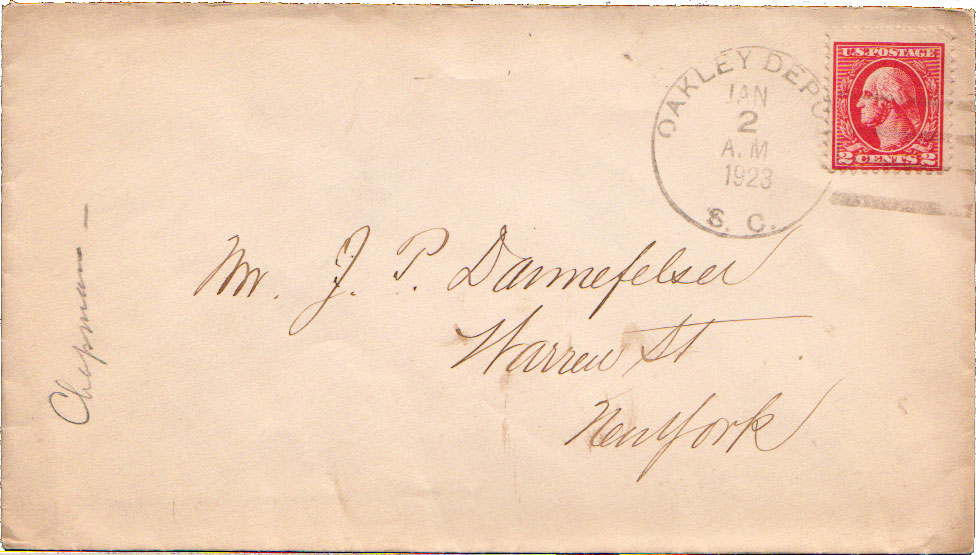 OAKLEY DEPO
JAN
2
A.M
1923
S. C.
U.S. POSTAGE
2 CENTS 2
Mr. J. P. Dannefelser
Warren St
New York
Chapman –